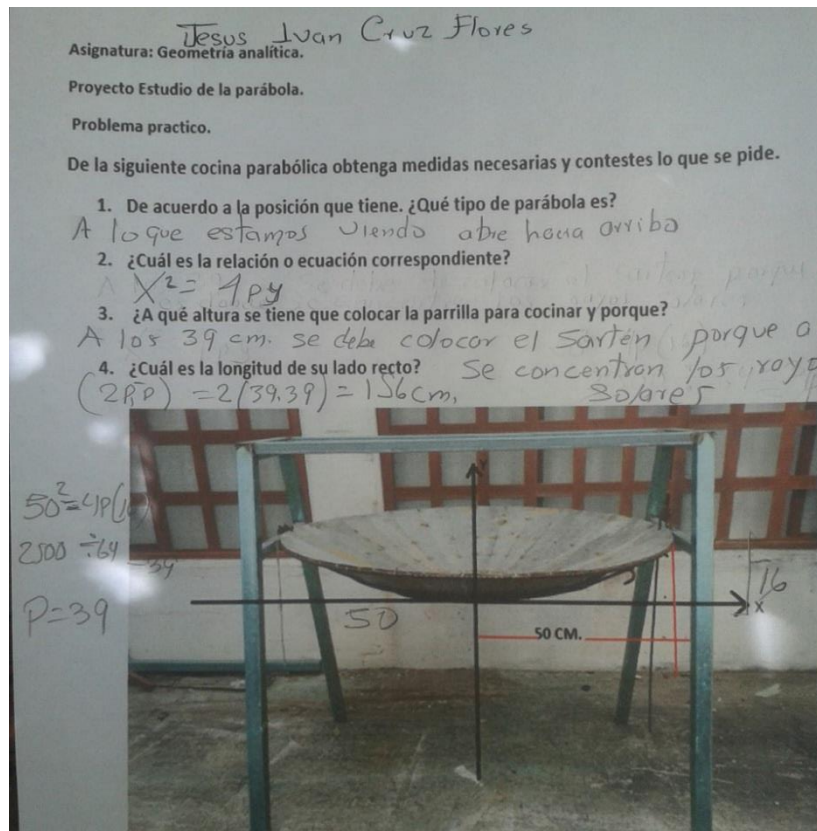 Jesus Ivan Cruz Flores
Asignatura: Geometría analítica.
Proyecto Estudio de la parábola.
Problema practico.
De la siguiente cocina parabólica obtenga medidas necesarias y contestes lo que se pide.
1. De acuerdo a la posición que tiene. ¿Qué tipo de parábola es?
A lo que estamos viendo abre hacia arriba
2. ¿Cuál es la relación o ecuación correspondiente?
X² = 4py
3. ¿A qué altura se tiene que colocar la parrilla para cocinar y porque?
A los 39 cm. se debe colocar el Sartén porque a
4. ¿Cuál es la longitud de su lado recto?
Se concentran los rayo
Solares
= 2(39.39) = 156 cm,
50² = 4P(16)
2500 ÷ 64
= 39
P = 39
50
50 CM.
16
X